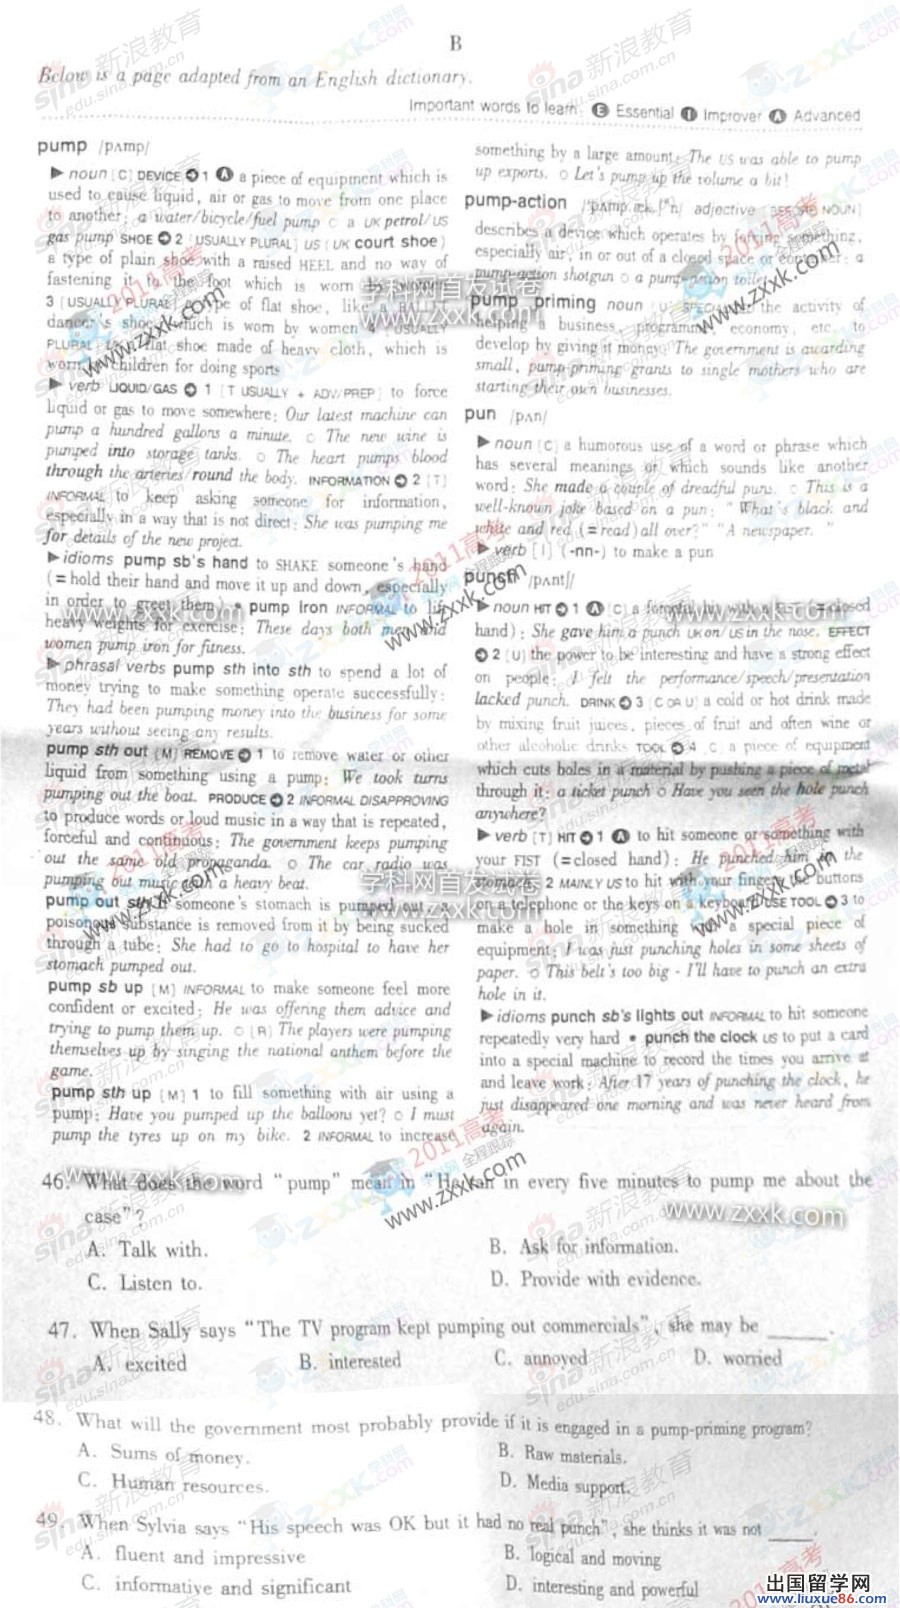 B
Below is a page adapted from an English dictionary.
Important words to learn: E Essential I Improver A Advanced
pump /pʌmp/
▶ noun [C] DEVICE ➔ 1 A a piece of equipment which is
used to cause liquid, air or gas to move from one place
to another: a water/bicycle/fuel pump ○ a UK petrol/US
gas pump SHOE ➔ 2 [USUALLY PLURAL] US (UK court shoe)
a type of plain shoe with a raised HEEL and no way of
fastening it to the foot which is worn by women
3 [USUALLY PLURAL] a type of flat shoe, like a
dancer's shoe, which is worn by women 4 [USUALLY
PLURAL] UK a flat shoe made of heavy cloth, which is
worn by children for doing sports
▶ verb LIQUID/GAS ➔ 1 [T USUALLY + ADV/PREP] to force
liquid or gas to move somewhere: Our latest machine can
pump a hundred gallons a minute. ○ The new wine is
pumped into storage tanks. ○ The heart pumps blood
through the arteries/round the body. INFORMATION ➔ 2 [T]
INFORMAL to keep asking someone for information,
especially in a way that is not direct: She was pumping me
for details of the new project.
▶idioms pump sb's hand to SHAKE someone's hand
(=hold their hand and move it up and down, especially
in order to greet them) • pump iron INFORMAL to lift
heavy weights for exercise: These days both men and
women pump iron for fitness.
▶phrasal verbs pump sth into sth to spend a lot of
money trying to make something operate successfully:
They had been pumping money into the business for some
years without seeing any results.
pump sth out [M] REMOVE ➔ 1 to remove water or other
liquid from something using a pump: We took turns
pumping out the boat. PRODUCE ➔ 2 INFORMAL DISAPPROVING
to produce words or loud music in a way that is repeated,
forceful and continuous: The government keeps pumping
out the same old propaganda. ○ The car radio was
pumping out music with a heavy beat.
pump out sth if someone's stomach is pumped out, a
poisonous substance is removed from it by being sucked
through a tube: She had to go to hospital to have her
stomach pumped out.
pump sb up [M] INFORMAL to make someone feel more
confident or excited: He was offering them advice and
trying to pump them up. ○ [R] The players were pumping
themselves up by singing the national anthem before the
game.
pump sth up [M] 1 to fill something with air using a
pump: Have you pumped up the balloons yet? ○ I must
pump the tyres up on my bike. 2 INFORMAL to increase
something by a large amount: The US was able to pump
up exports. ○ Let's pump up the volume a bit!
pump-action adjective [BEFORE NOUN]
describes a device which operates by forcing something,
especially air, in or out of a closed space or container: a
pump-action shotgun ○ a pump-action toilet
pump priming noun [U] SPECIALIZED the activity of
helping a business, programme, economy, etc. to
develop by giving it money: The government is awarding
small, pump-priming grants to single mothers who are
starting their own businesses.
pun /pʌn/
▶ noun [C] a humorous use of a word or phrase which
has several meanings or which sounds like another
word: She made a couple of dreadful puns. ○ This is a
well-known joke based on a pun: "What's black and
white and red (=read) all over?" "A newspaper."
▶ verb [I] (-nn-) to make a pun
punch /pʌntʃ/
▶ noun HIT ➔ 1 A [C] a forceful hit with a FIST (=closed
hand): She gave him a punch UK on/US in the nose. EFFECT
➔ 2 [U] the power to be interesting and have a strong effect
on people: I felt the performance/speech/presentation
lacked punch. DRINK ➔ 3 [C OR U] a cold or hot drink made
by mixing fruit juices, pieces of fruit and often wine or
other alcoholic drinks TOOL ➔ 4 [C] a piece of equipment
which cuts holes in a material by pushing a piece of metal
through it: a ticket punch ○ Have you seen the hole punch
anywhere?
▶ verb [T] HIT ➔ 1 A to hit someone or something with
your FIST (=closed hand): He punched him in the
stomach. 2 MAINLY US to hit with your fingers the buttons
on a telephone or the keys on a keyboard USE TOOL ➔ 3 to
make a hole in something with a special piece of
equipment: I was just punching holes in some sheets of
paper. ○ This belt's too big - I'll have to punch an extra
hole in it.
▶ idioms punch sb's lights out INFORMAL to hit someone
repeatedly very hard • punch the clock US to put a card
into a special machine to record the times you arrive at
and leave work: After 17 years of punching the clock, he
just disappeared one morning and was never heard from
again.
46. What does the word "pump" mean in "He ran in every five minutes to pump me about the
case"?
A. Talk with. B. Ask for information.
C. Listen to. D. Provide with evidence.
47. When Sally says "The TV program kept pumping out commercials", she may be ______.
A. excited B. interested C. annoyed D. worried
48. What will the government most probably provide if it is engaged in a pump-priming program?
A. Sums of money. B. Raw materials.
C. Human resources. D. Media support.
49. When Sylvia says "His speech was OK but it had no real punch", she thinks it was not ______.
A. fluent and impressive B. logical and moving
C. informative and significant D. interesting and powerful
出国留学网
www.liuxue86.com
sina新浪教育
edu.sina.com.cn
学科网
ZXXK.com
学科网首发试卷
www.zxxk.com
2011高考
全程跟踪